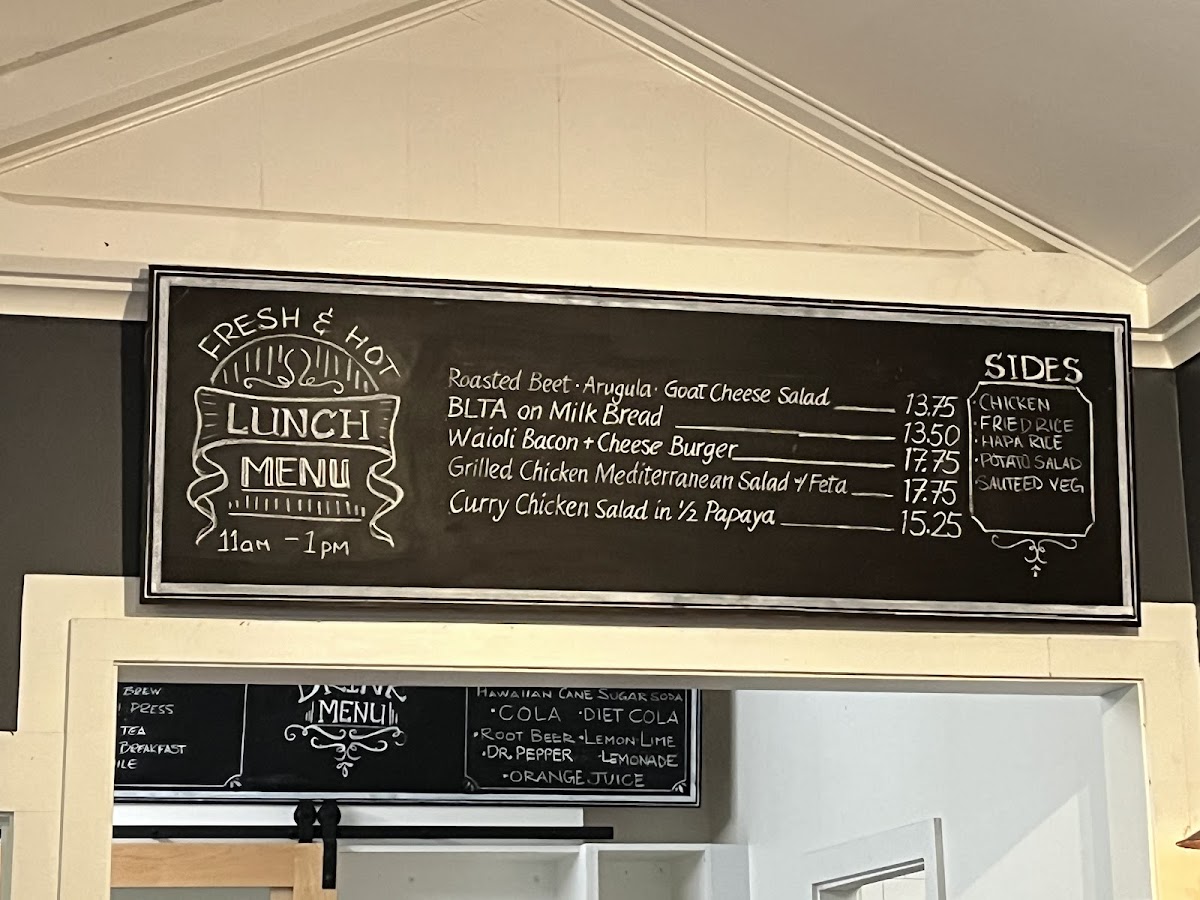 FRESH & HOT
LUNCH
MENU
11AM - 1PM
Roasted Beet · Arugula · Goat Cheese Salad 13.75
BLTA on Milk Bread 13.50
Waioli Bacon + Cheese Burger 17.75
Grilled Chicken Mediterranean Salad w/ Feta 17.75
Curry Chicken Salad in 1/2 Papaya 15.25
SIDES
· CHICKEN
· FRIED RICE
· HAPA RICE
· POTATO SALAD
· SAUTEED VEG
BREW
PRESS
TEA
BREAKFAST
DRINK
MENU
HAWAIIAN CANE SUGAR SODA
· COLA · DIET COLA
· ROOT BEER · LEMON-LIME
· DR. PEPPER · LEMONADE
· ORANGE JUICE